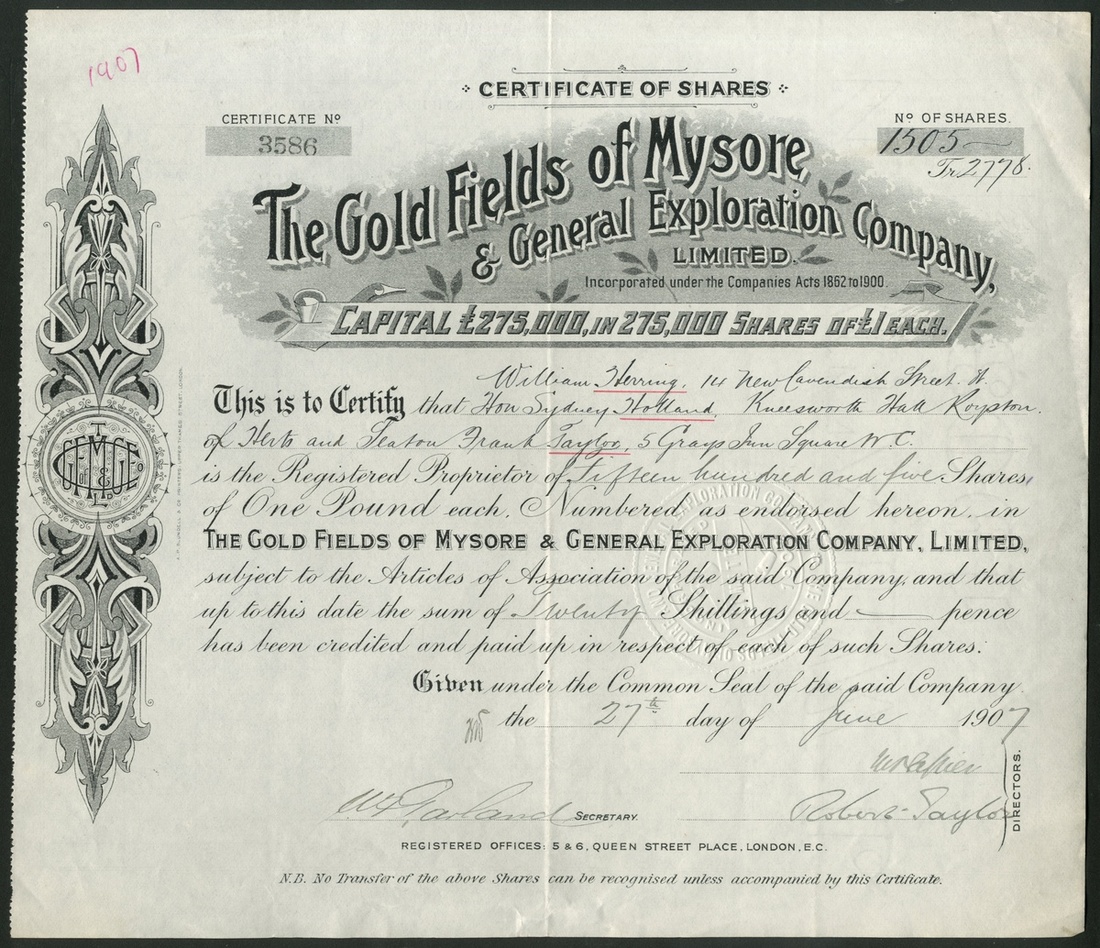 1907
CERTIFICATE OF SHARES
CERTIFICATE Nº
3586
Nº OF SHARES.
1505—
Tr. 2778.
The Gold Fields of Mysore
& General Exploration Company,
LIMITED.
Incorporated under the Companies Acts 1862 to 1900.
CAPITAL £275,000, IN 275,000 SHARES OF £1 EACH.
William Herring, 14 New Cavendish Street. W.
This is to Certify that Hon Sydney Holland, Kneesworth Hall Royston.
of Herts and Seaton Frank Taylor, 5 Grays Inn Square W.C.
is the Registered Proprietor of Fifteen hundred and five Shares,
of One Pound each, Numbered as endorsed hereon, in
THE GOLD FIELDS OF MYSORE & GENERAL EXPLORATION COMPANY, LIMITED,
subject to the Articles of Association of the said Company, and that
up to this date the sum of Twenty Shillings and — pence
has been credited and paid up in respect of each of such Shares.
Given under the Common Seal of the said Company
the 27th day of June 1907
Robert Taylor
DIRECTORS.
Garland SECRETARY.
REGISTERED OFFICES: 5 & 6, QUEEN STREET PLACE, LONDON, E.C.
N.B. No Transfer of the above Shares can be recognised unless accompanied by this Certificate.